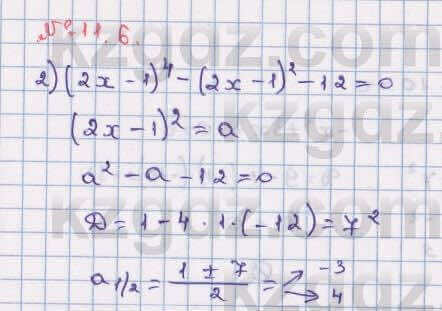 № 11.6.
2) (2x - 1)⁴ - (2x - 1)² - 12 = 0
(2x - 1)² = a
a² - a - 12 = 0
D = 1 - 4 · 1 · (-12) = 7²
a 1/2 = (1 ± 7)/2 = -3
4
kzgdz.com